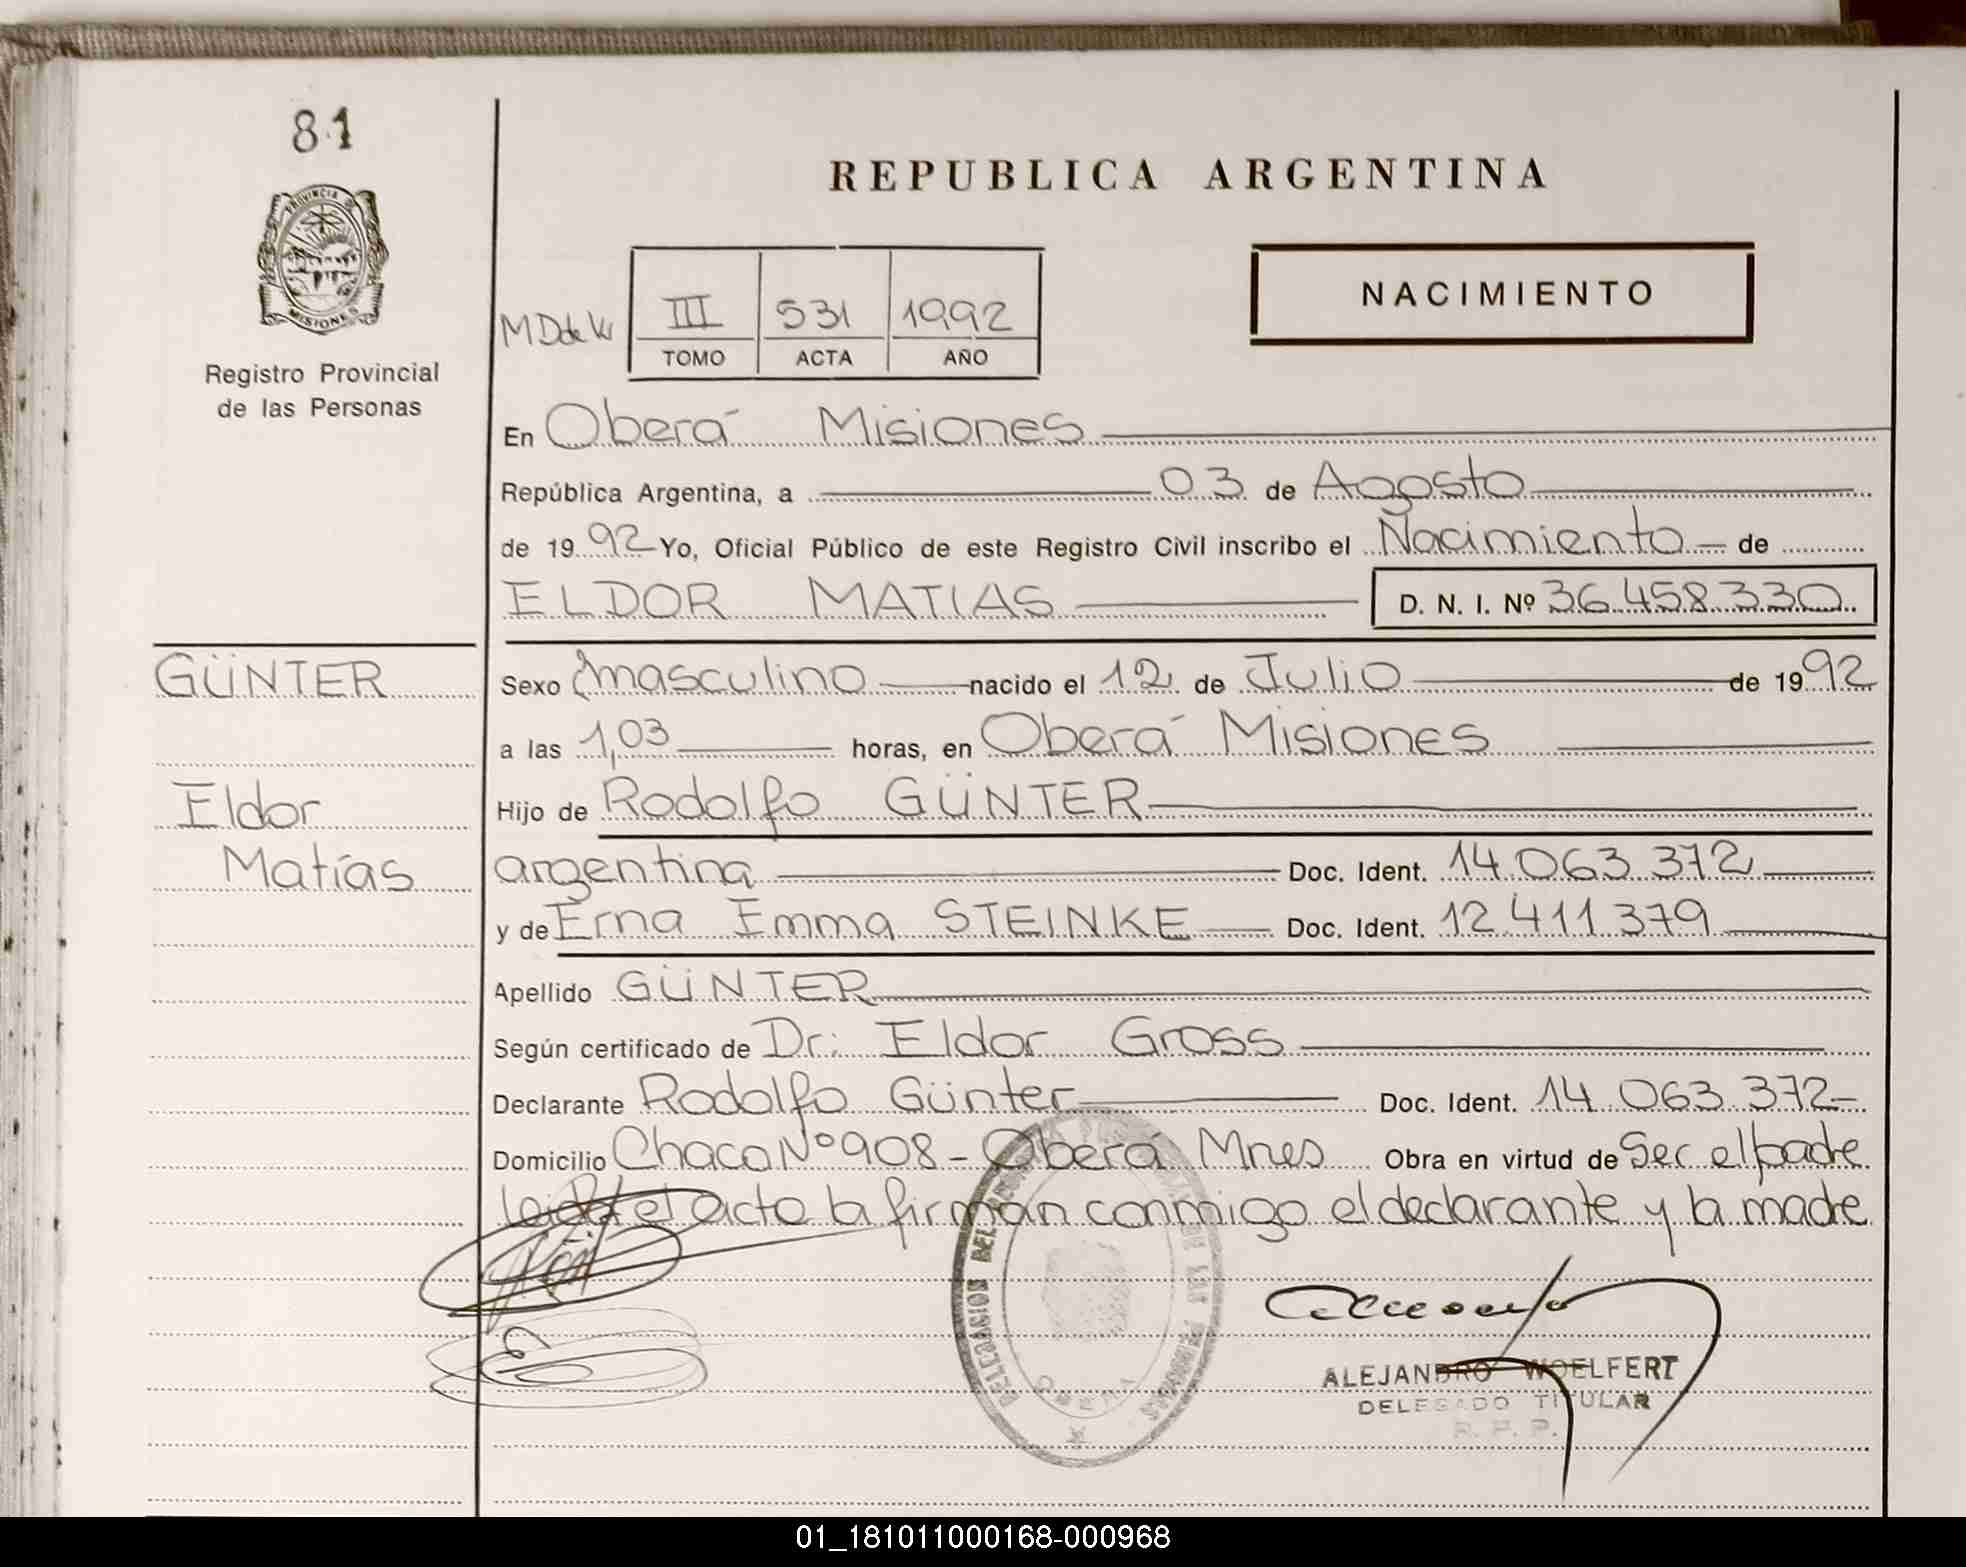 81
PROVINCIA DE
MISIONES
Registro Provincial
de las Personas
REPUBLICA ARGENTINA
III 531 1992
TOMO ACTA AÑO
NACIMIENTO
En Oberá Misiones
República Argentina, a 03 de Agosto
de 1992 Yo, Oficial Público de este Registro Civil inscribo el Nacimiento de
ELDOR MATIAS D. N. I. Nº 36.458.330
GÜNTER
Sexo masculino nacido el 12 de Julio de 1992
a las 1,03 horas, en Oberá Misiones
Eldor
Hijo de Rodolfo GÜNTER
Matías
argentina Doc. Ident. 14.063.372
y de Erna Emma STEINKE Doc. Ident. 12.411.379
Apellido GÜNTER
Según certificado de Dr: Eldor Gross
Declarante Rodolfo Günter Doc. Ident. 14.063.372-
Domicilio Chaco Nº 908 - Oberá Mnes Obra en virtud de Ser el padre
el acta la firman conmigo el declarante y la madre
DELEGACION DEL DE LAS PERSONAS
OBERA
ALEJANDRO WOELFERT
DELEGADO TITULAR
R. P. P.
01_181011000168-000968